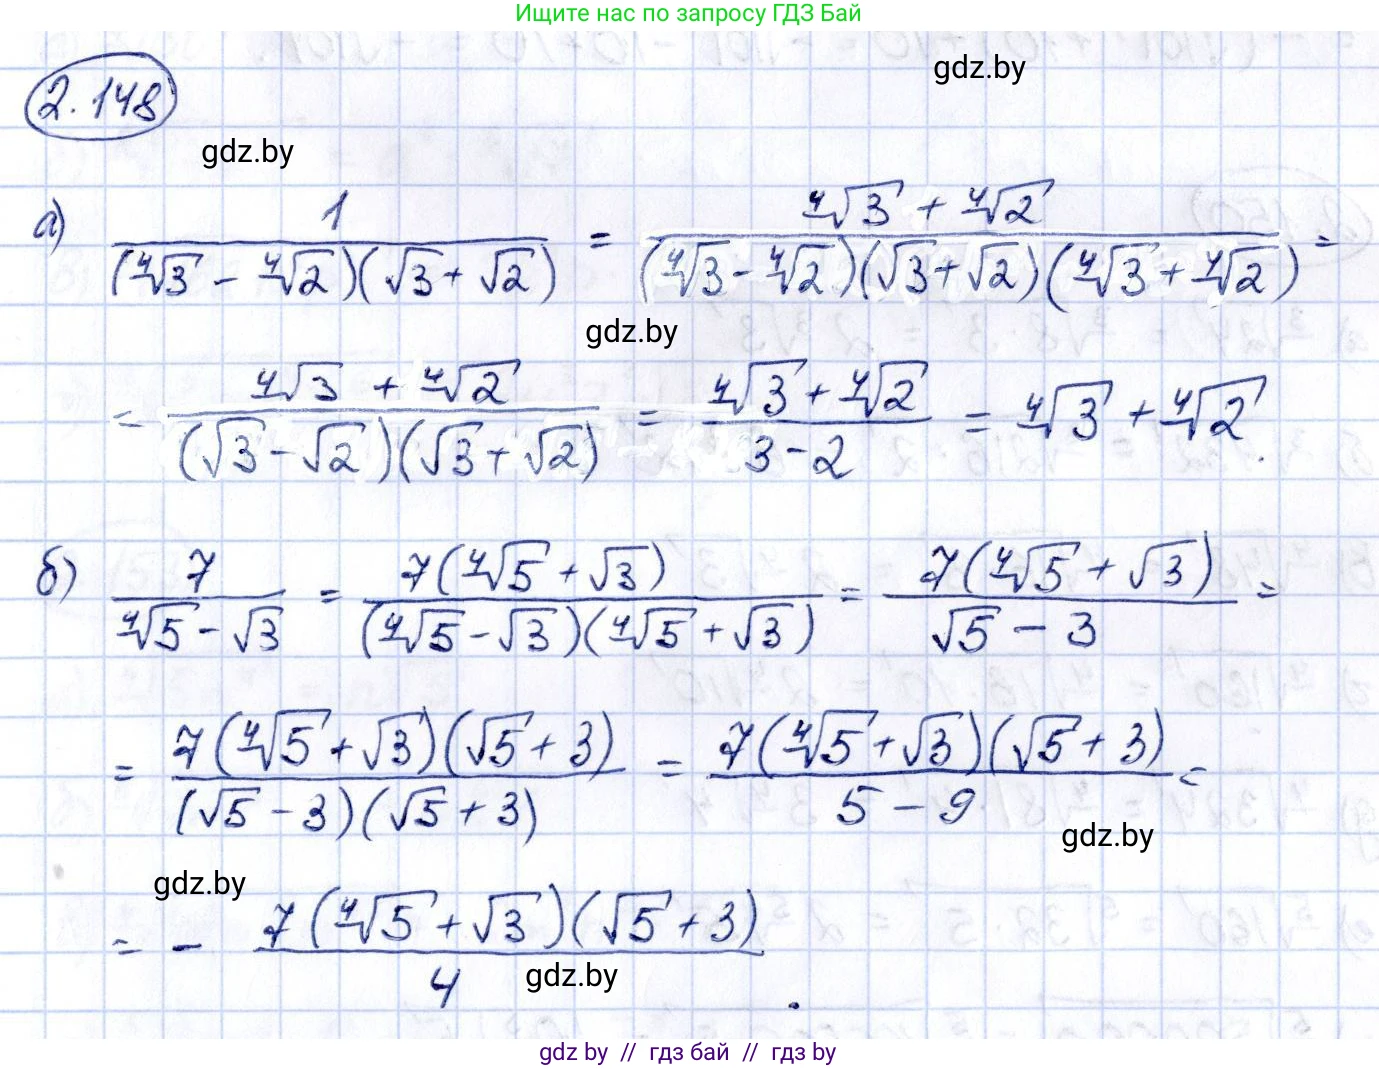 Ищите нас по запросу ГДЗ Бай
gdz.by
2.148
gdz.by
а) 1/((⁴√3 - ⁴√2)(√3 + √2)) = (⁴√3 + ⁴√2)/((⁴√3 - ⁴√2)(√3 + √2)(⁴√3 + ⁴√2)) =
gdz.by
= (⁴√3 + ⁴√2)/((√3 - √2)(√3 + √2)) = (⁴√3 + ⁴√2)/(3 - 2) = ⁴√3 + ⁴√2.
б) 7/(⁴√5 - √3) = 7(⁴√5 + √3)/((⁴√5 - √3)(⁴√5 + √3)) = 7(⁴√5 + √3)/(√5 - 3) =
= 7(⁴√5 + √3)(√5 + 3)/((√5 - 3)(√5 + 3)) = 7(⁴√5 + √3)(√5 + 3)/(5 - 9) =
gdz.by
gdz.by
= - 7(⁴√5 + √3)(√5 + 3)/4.
gdz.by
gdz by // гдз бай // гдз by